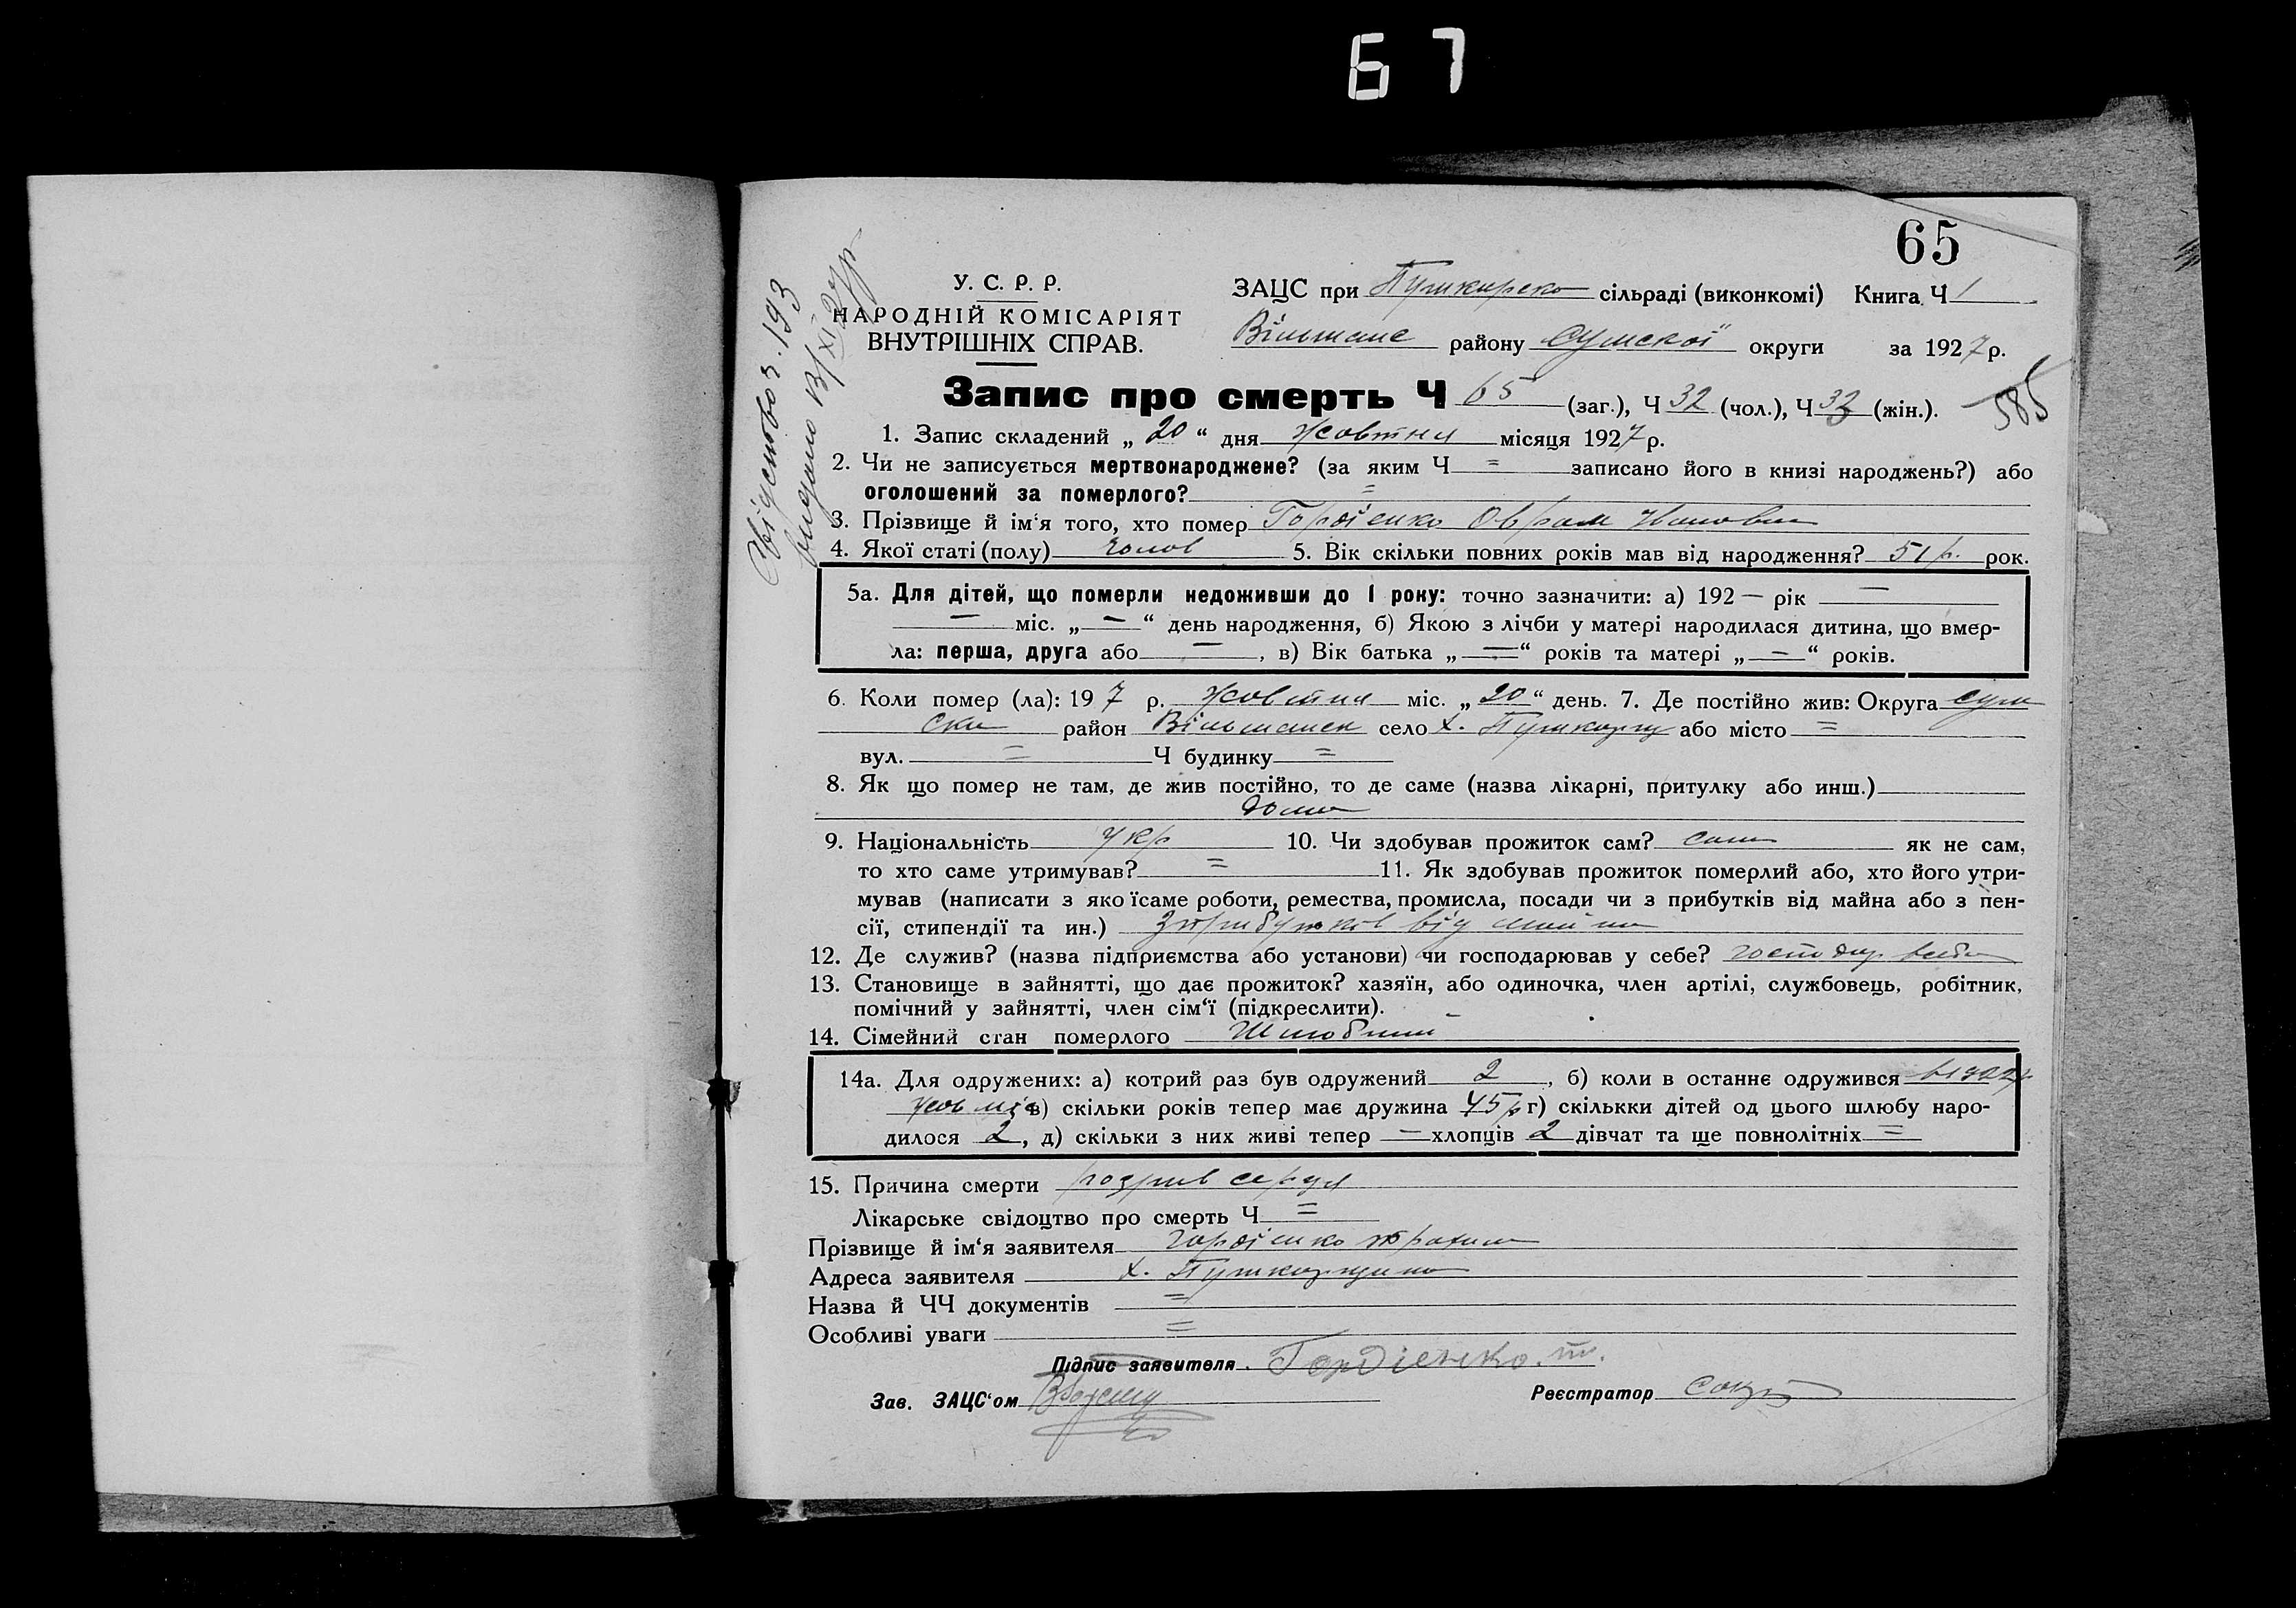 67
65
У. С. Р. Р.
НАРОДНІЙ КОМІСАРІЯТ
ВНУТРІШНІХ СПРАВ.
ЗАЦС при Пушкарсько сільраді (виконкомі) Книга Ч 1
Вільшане району Сумської округи за 1927 р.
585
Запис про смерть Ч 65 (заг.), Ч 32 (чол.), Ч 33 (жін.).
Свідоцтво з. 193
видано 13/XI 27р
1. Запис складений „ 20 “ дня жовтня місяця 1927 р.
2. Чи не записується мертвонароджене? (за яким Ч = записано його в книзі народжень?) або
оголошений за померлого? =
3. Прізвище й ім‘я того, хто помер Гордієнко Оврам
4. Якої статі (полу) чолов 5. Вік скільки повних років мав від народження? 51 р. рок.
5а. Для дітей, що померли недоживши до 1 року: точно зазначити: а) 192 — рік —
— міс. „ — “ день народження, б) Якою з лічби у матері народилася дитина, що вмер-
ла: перша, друга або — , в) Вік батька „ — “ років та матері „ — “ років.
6. Коли помер (ла): 197 р. Жовтня міс. „ 20 “ день. 7. Де постійно жив: Округа Сум
ска район Вільшанск село х. Пушкарщ або місто =
вул. = Ч будинку =
8. Як що помер не там, де жив постійно, то де саме (назва лікарні, притулку або инш.)
дома
9. Національність укр 10. Чи здобував прожиток сам? сам як не сам,
то хто саме утримував? = 11. Як здобував прожиток померлий або, хто його утри-
мував (написати з яко їсаме роботи, ремества, промисла, посади чи з прибутків від майна або з пен-
сії, стипендії та ин.) з прибутків від майна
12. Де служив? (назва підприємства або установи) чи господарював у себе? господар
13. Становище в зайнятті, що дає прожиток? хазяїн, або одиночка, член артілі, службовець, робітник,
помічний у зайнятті, член сім‘ї (підкреслити).
14. Сімейний стан померлого Шлюбний
14а. Для одружених: а) котрий раз був одружений 2 , б) коли в останнє одружився
в) скільки років тепер має дружина 45 р г) скількки дітей од цього шлюбу наро-
дилося 2 , д) скільки з них живі тепер — хлопців 2 дівчат та ще повнолітніх =
15. Причина смерти розрив серця
Лікарське свідоцтво про смерть Ч =
Прізвище й ім‘я заявителя Гордієнко
Адреса заявителя х. Пушкарщина
Назва й ЧЧ документів =
Особливі уваги =
Підпис заявителя. Гордієнко. т.
Зав. ЗАЦС‘ом Реєстратор